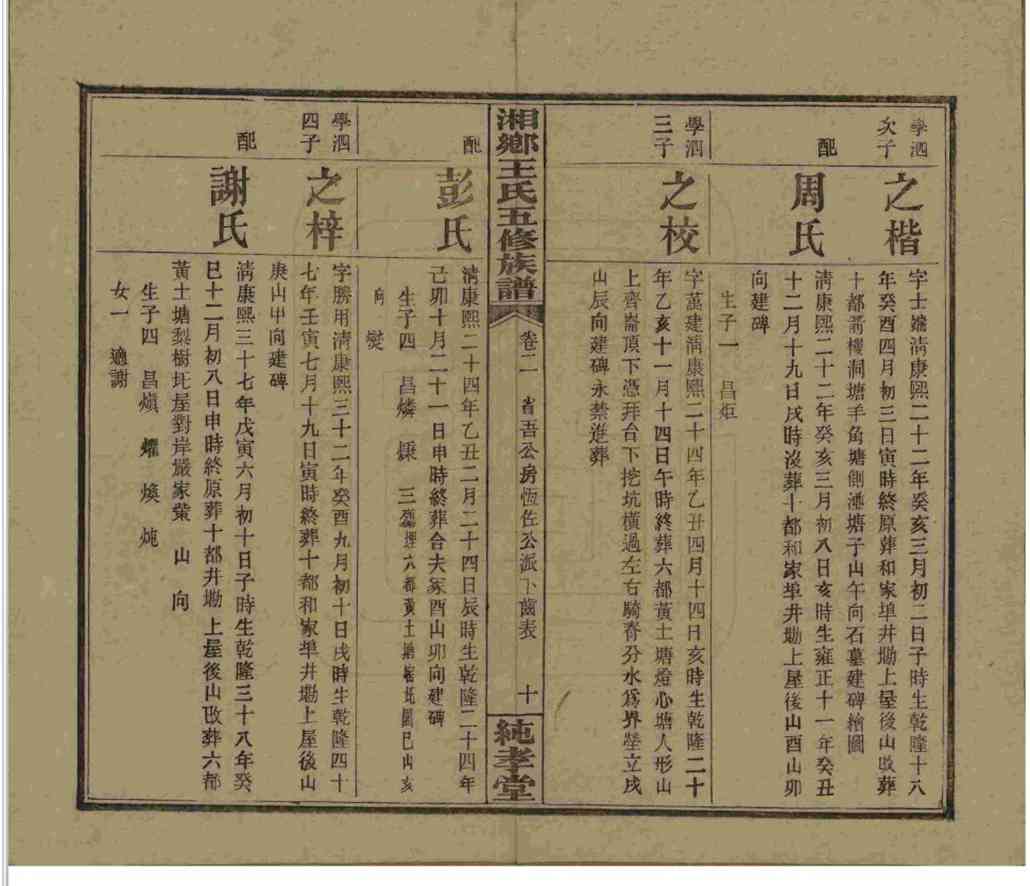 學泗
次子
之楷
字士嶦清康熙二十二年癸亥三月初二日子時生乾隆十八
年癸酉四月初三日寅時終原葬和家埠井塴上屋後山改葬
十都箭樓洞塘羊角塘側塘子山午向石墓建碑繪圖
配
周氏
清康熙二十二年癸亥三月初八日亥時生雍正十一年癸丑
十二月十九日戌時沒葬十都和家埠井塴上屋後山酉山卯
向建碑
生子一　昌炬
學泗
三子
之校
字萬建清康熙二十四年乙丑四月十四日亥時生乾隆二十
年乙亥十一月十四日午時終葬六都黃土塘燈心塘人形山
上齊崙頂下憑拜台下挖坑橫過左右騎脊分水爲界塋立戌
山辰向建碑永禁進葬
湘鄉王氏五修族譜
卷二　省吾公房恆佐公派下齒表　十
純孝堂
配
彭氏
清康熙二十四年乙丑二月二十四日辰時生乾隆二十四年
己卯十月二十一日申時終葬合夫冢酉山卯向建碑
生子四　昌燐　熑　三　葬六都黃土塘圫園巳山亥
向　爕
學泗
四子
之梓
字勝用清康熙三十二年癸酉九月初十日戌時生乾隆四十
七年壬寅七月十九日寅時終葬十都和家埠井塴上屋後山
庚山甲向建碑
配
謝氏
清康熙三十七年戊寅六月初十日子時生乾隆三十八年癸
巳十二月初八日申時終原葬十都井塴上屋後山改葬六都
黃土塘梨樹圫屋對岸嚴家塋　山　向
生子四　昌熉　燿　煥　炖
女一　適謝